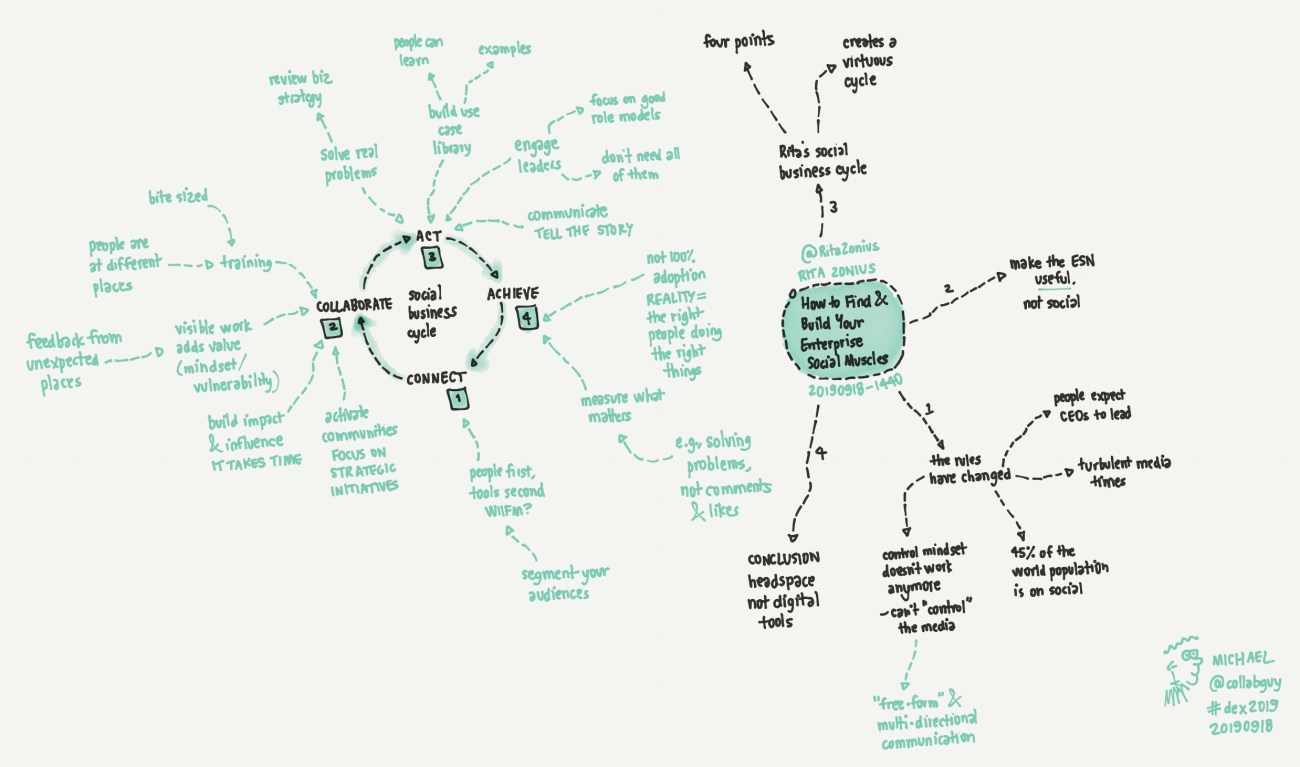 people can
learn
examples
review biz
strategy
build use
case
library
focus on good
role models
engage
leaders
don't need all
of them
solve real
problems
bite sized
communicate
TELL THE STORY
people are
at different
places
training
ACT
3
COLLABORATE
2
social
business
cycle
ACHIEVE
4
CONNECT
1
not 100%
adoption
REALITY=
the right
people doing
the right
things
visible work
adds value
(mindset/
vulnerability)
feedback from
unexpected
places
build impact
& influence
IT TAKES TIME
activate
communities
FOCUS ON
STRATEGIC
INITIATIVES
measure what
matters
e.g., solving
problems,
not comments
& likes
people first,
tools second
WIIFM?
segment your
audiences
four points
creates a
virtuous
cycle
Rita's social
business cycle
3
@RitaZonius
RITA ZONIUS
How to Find &
Build Your
Enterprise
Social Muscles
20190918-1440
2
make the ESN
useful,
not social
1
the rules
have changed
people expect
CEOs to lead
turbulent media
times
45% of the
world population
is on social
control mindset
doesn't work
anymore
- can't "control"
the media
"free-form" &
multi-directional
communication
4
CONCLUSION
headspace
not digital
tools
MICHAEL
@collabguy
#dex2019
20190918